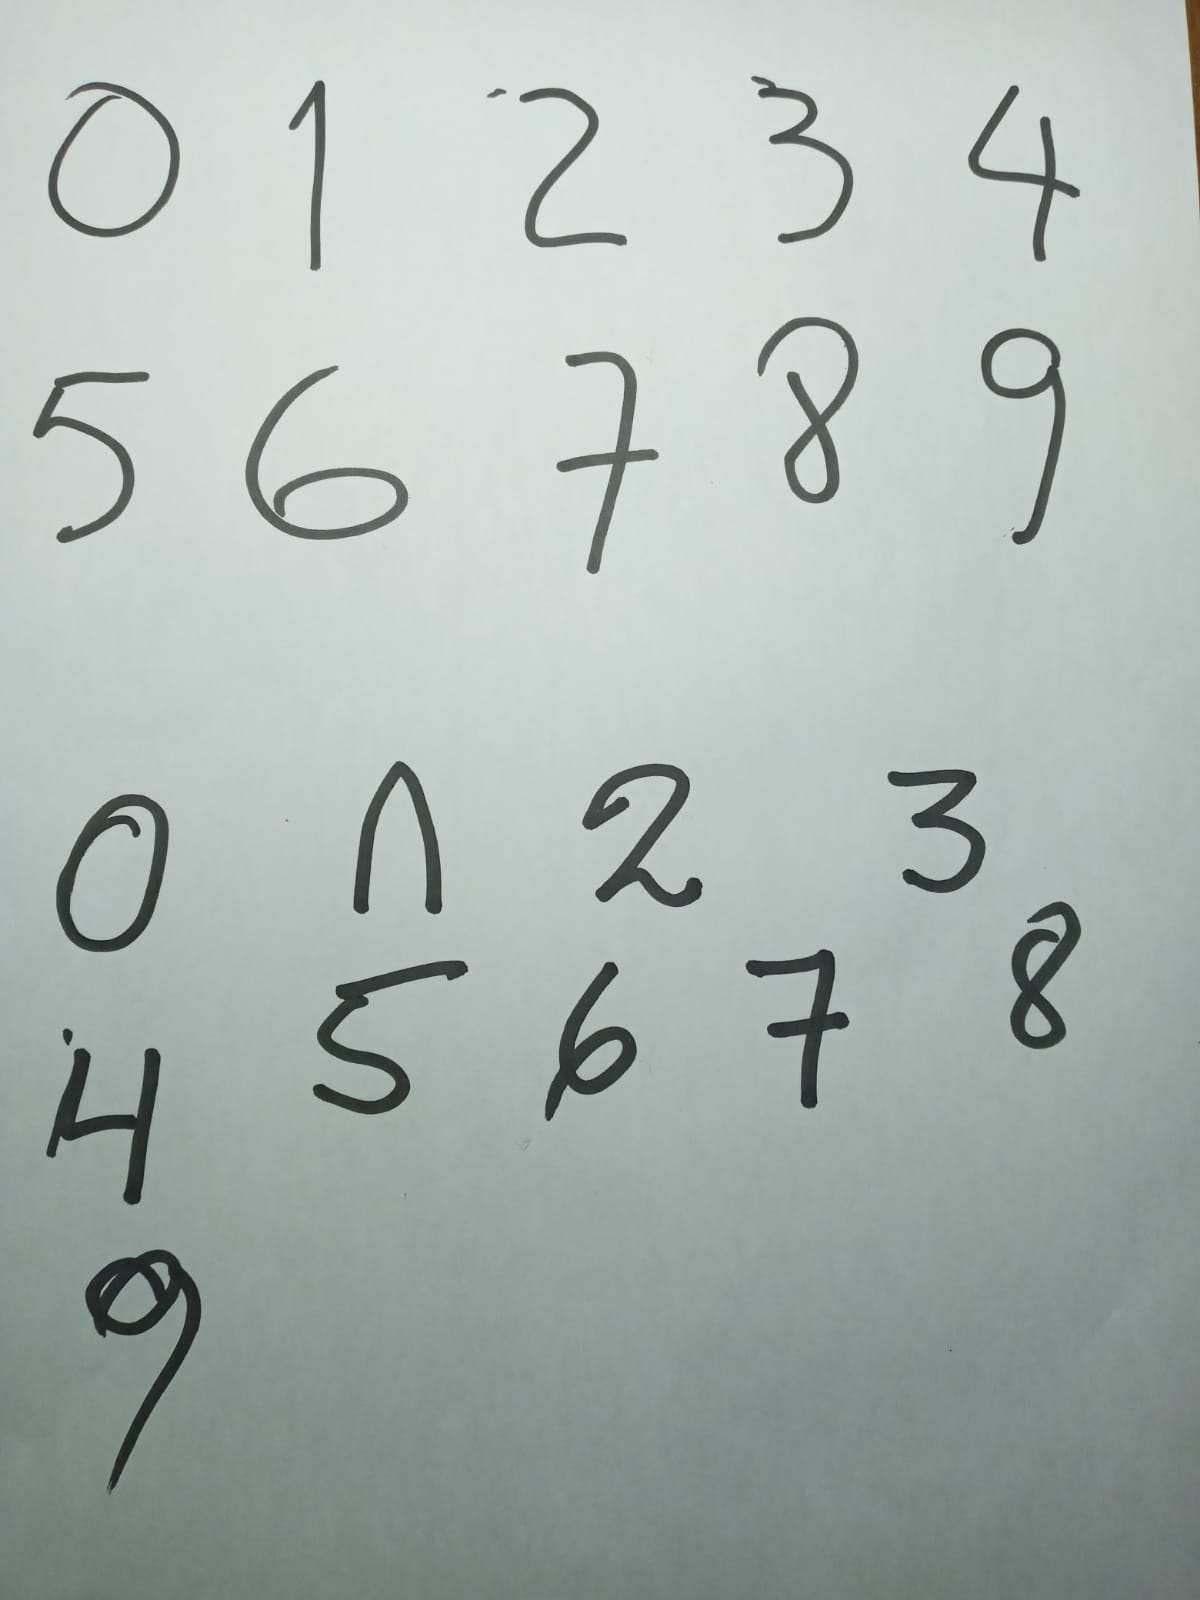 0 1 2 3 4
5 6 7 8 9
0 1 2 3
4 5 6 7 8
9